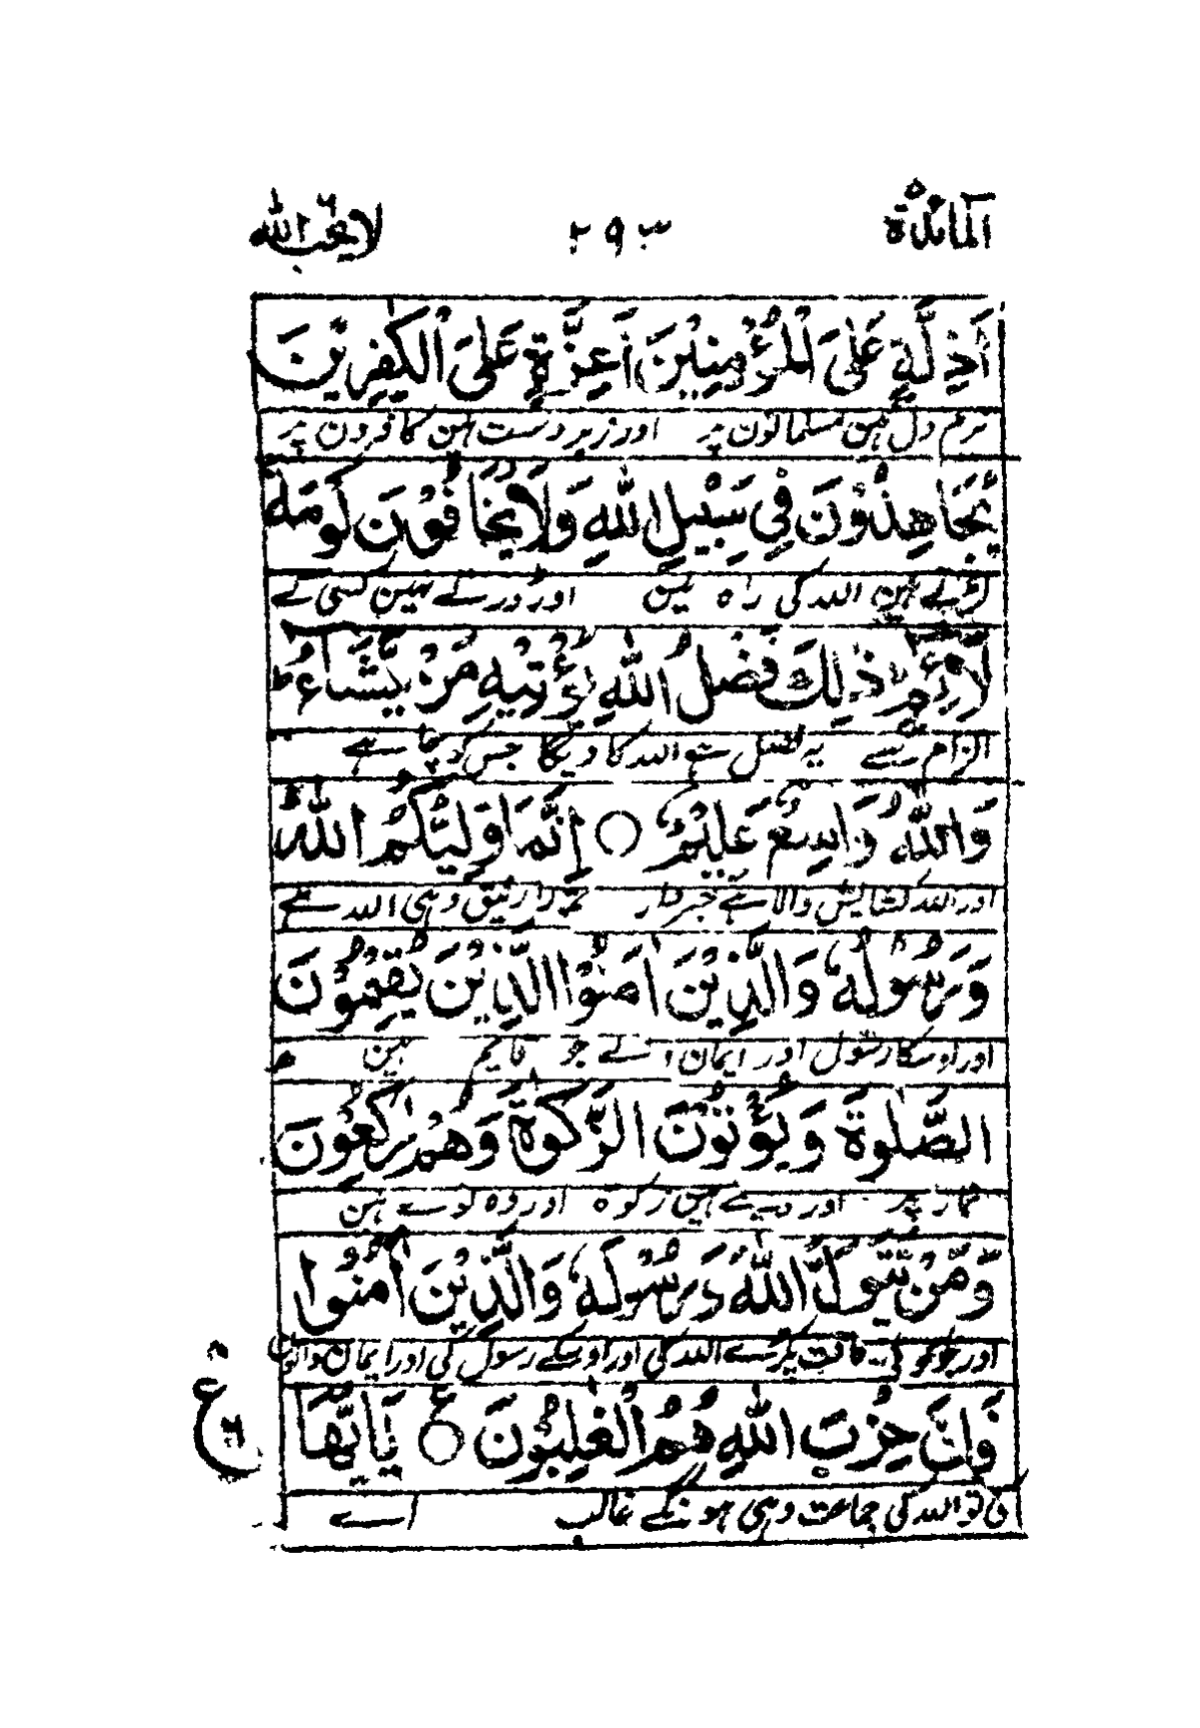 المائدة ٥ ٢٩٣ لا يحب الله ٦
اَذِلَّةٍ عَلَى الْمُؤْمِنِيْنَ اَعِزَّةٍ عَلَى الْكٰفِرِيْنَ
نرم دل ہین مسلمانون پر اور زبردست ہین کافرون پر
يُجَاهِدُوْنَ فِيْ سَبِيْلِ اللّٰهِ وَلَا يَخَافُوْنَ لَوْمَةَ
لڑتے ہین اللہ کی راہ مین اور ڈرتے نہین کسی کے
لَآئِمٍ ذٰلِكَ فَضْلُ اللّٰهِ يُؤْتِيْهِ مَنْ يَّشَآءُ ط
الزام سے یہ فضل ہے اللہ کا دیگا جس کو چاہے
وَاللّٰهُ وَاسِعٌ عَلِيْمٌ ○ اِنَّمَا وَلِيُّكُمُ اللّٰهُ
اور اللہ کشایش والا ہے خبردار تمہارا رفیق وہی اللہ ہے
وَرَسُوْلُهٗ وَالَّذِيْنَ اٰمَنُوا الَّذِيْنَ يُقِيْمُوْنَ
اور اوسکا رسول اور ایمان والے جو قایم ہین
الصَّلٰوةَ وَيُؤْتُوْنَ الزَّكٰوةَ وَهُمْ رٰكِعُوْنَ
نماز پر اور دیتے ہین زکوہ اور وہ نوے ہین
وَمَنْ يَّتَوَلَّ اللّٰهَ وَرَسُوْلَهٗ وَالَّذِيْنَ اٰمَنُوْا
اور جو کوئی رفاقت پکڑے اللہ کی اور اوسکے رسول کی اور ایمان والون
فَاِنَّ حِزْبَ اللّٰهِ هُمُ الْغٰلِبُوْنَ ○ ع يٰٓاَيُّهَا
کی تو اللہ کی جماعت وہی ہونگے غالب اے
ع